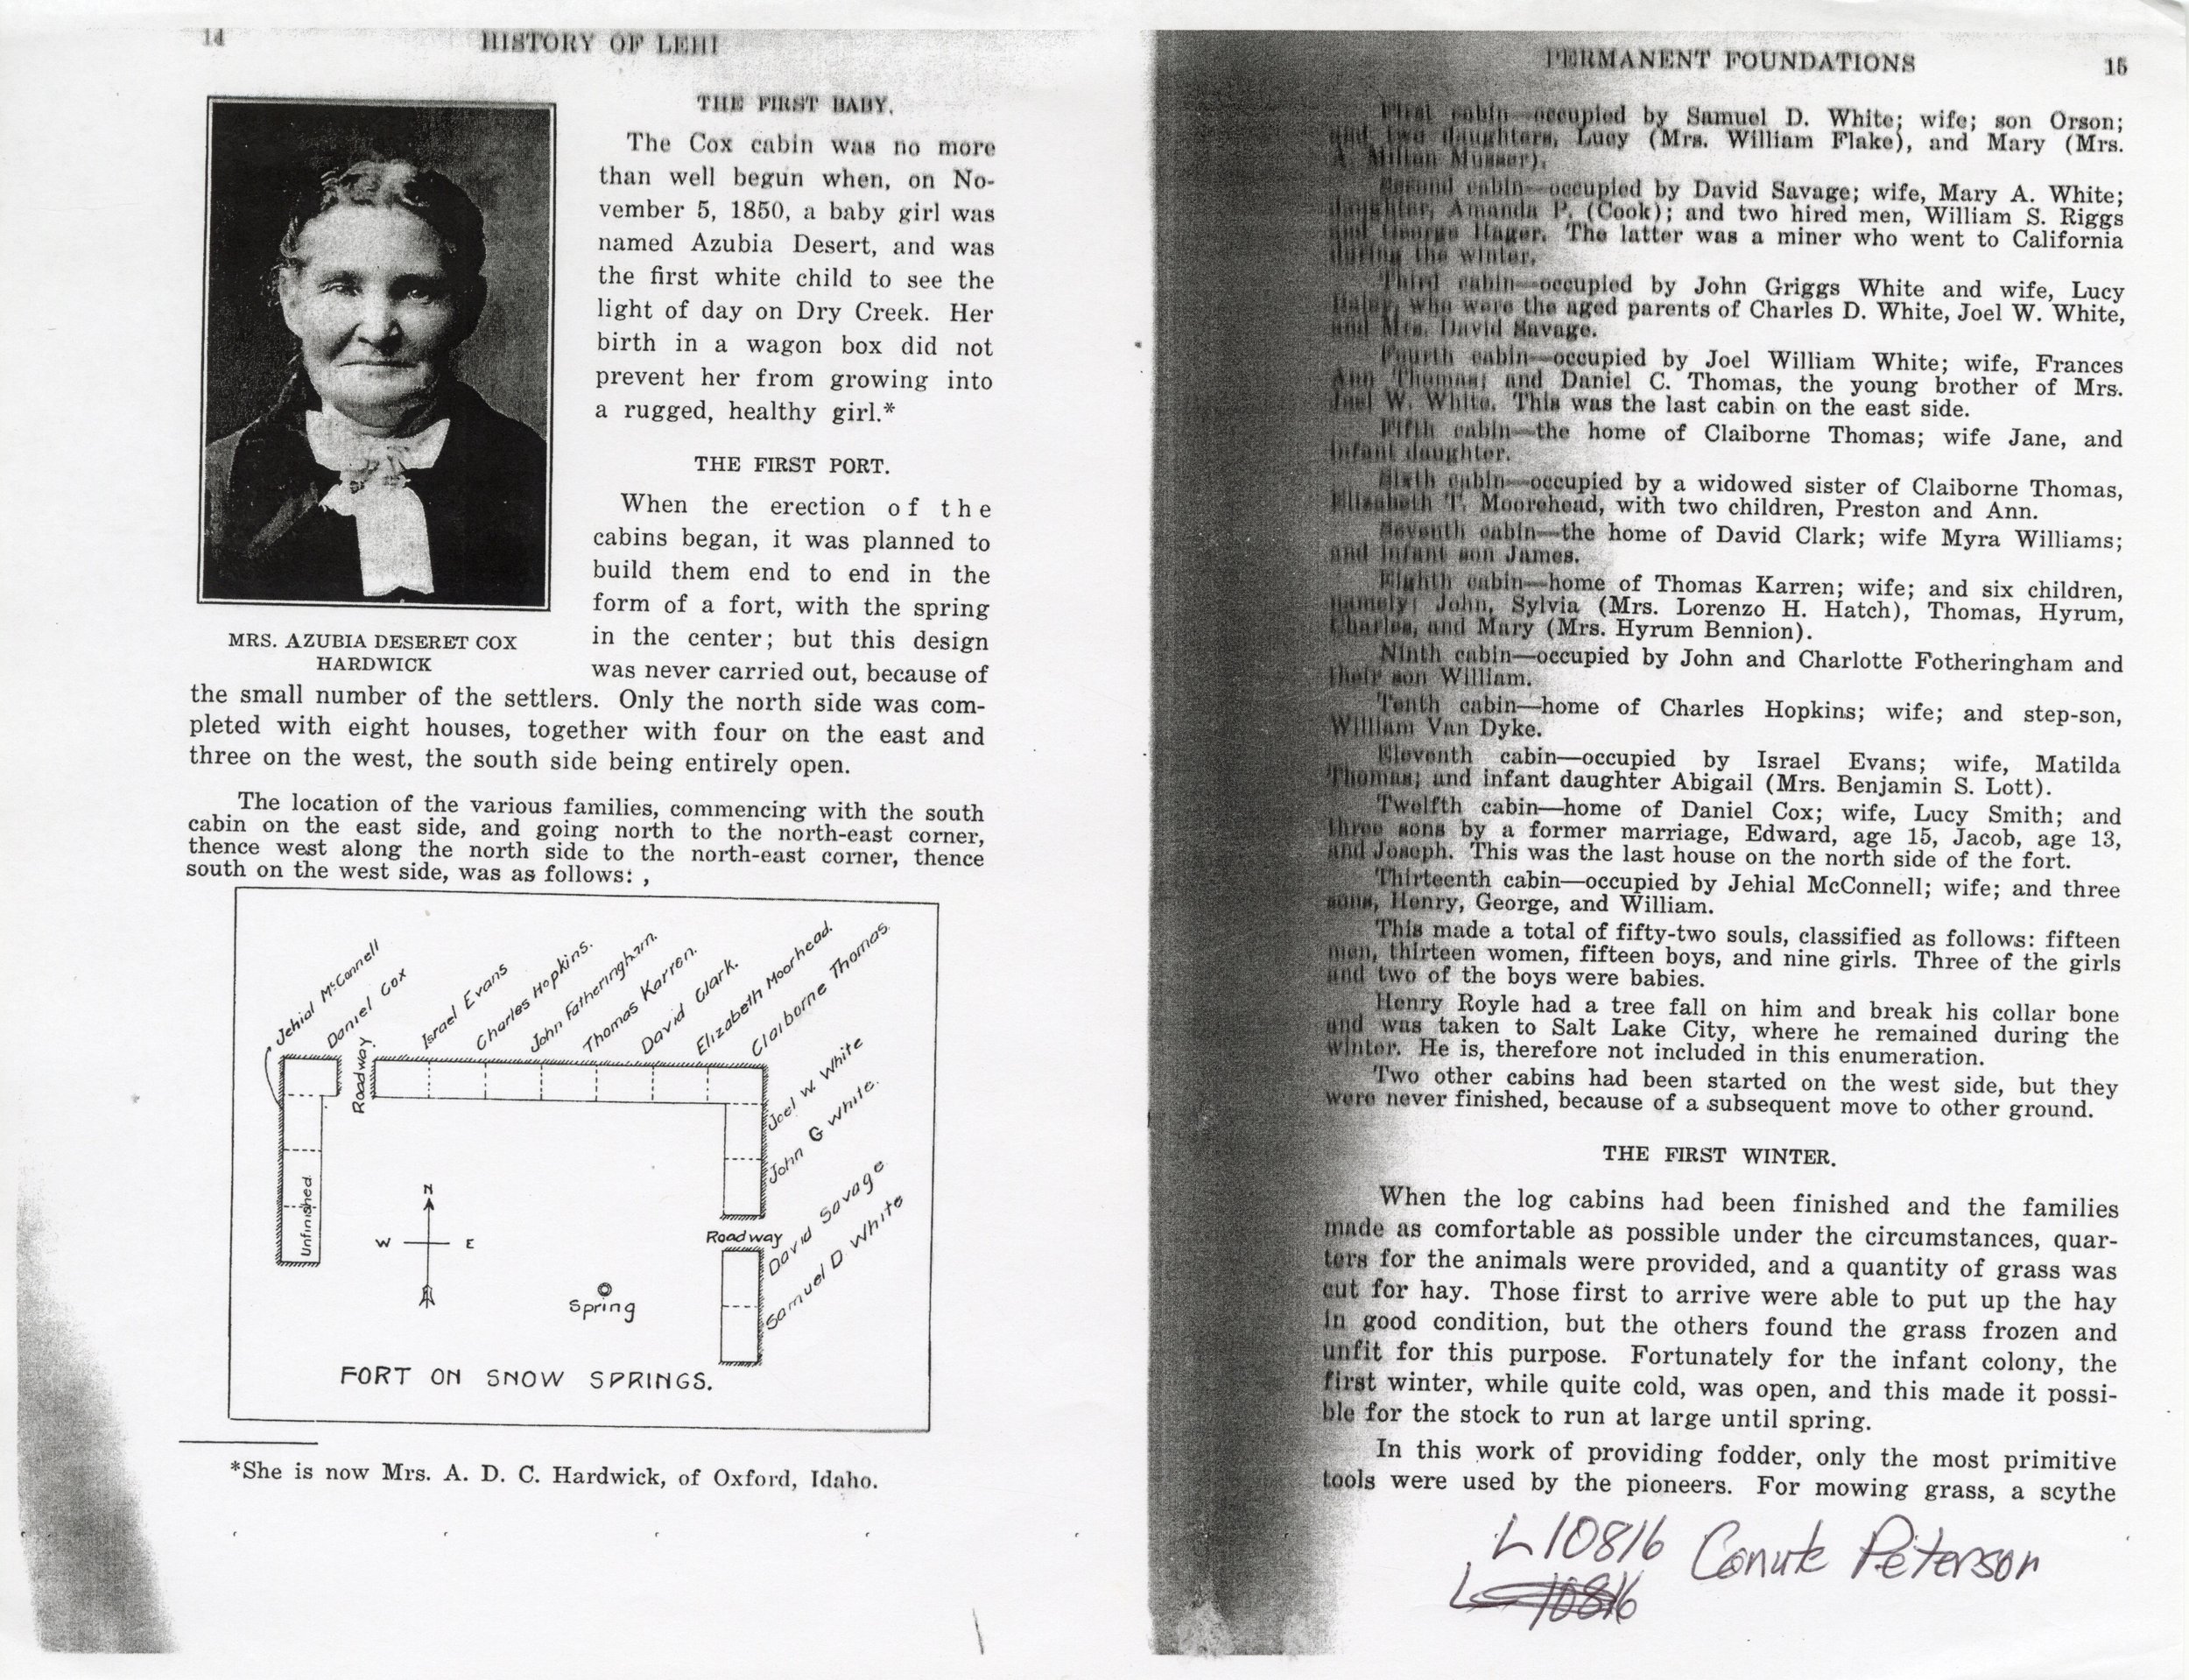 14
HISTORY OF LEHI
THE FIRST BABY.
The Cox cabin was no more
than well begun when, on No-
vember 5, 1850, a baby girl was
named Azubia Desert, and was
the first white child to see the
light of day on Dry Creek. Her
birth in a wagon box did not
prevent her from growing into
a rugged, healthy girl.*
MRS. AZUBIA DESERET COX
HARDWICK
THE FIRST PORT.
When the erection of the
cabins began, it was planned to
build them end to end in the
form of a fort, with the spring
in the center; but this design
was never carried out, because of
the small number of the settlers. Only the north side was com-
pleted with eight houses, together with four on the east and
three on the west, the south side being entirely open.
The location of the various families, commencing with the south
cabin on the east side, and going north to the north-east corner,
thence west along the north side to the north-east corner, thence
south on the west side, was as follows: ,
Jehial McConnell
Daniel Cox
Roadway
Israel Evans
Charles Hopkins.
John Fatheringham.
Thomas Karren.
David Clark.
Elizabeth Moorhead.
Claiborne Thomas.
Joel W. White
John G White.
Roadway
David Savage
Samuel D. White
Unfinished.
N
W E
Spring
FORT ON SNOW SPRINGS.
*She is now Mrs. A. D. C. Hardwick, of Oxford, Idaho.
PERMANENT FOUNDATIONS
15
First cabin—occupied by Samuel D. White; wife; son Orson;
and two daughters, Lucy (Mrs. William Flake), and Mary (Mrs.
A. Milton Musser).
Second cabin—occupied by David Savage; wife, Mary A. White;
daughter, Amanda P. (Cook); and two hired men, William S. Riggs
and George Hager. The latter was a miner who went to California
during the winter.
Third cabin—occupied by John Griggs White and wife, Lucy
who were the aged parents of Charles D. White, Joel W. White,
and Mrs. David Savage.
Fourth cabin—occupied by Joel William White; wife, Frances
Ann Thomas; and Daniel C. Thomas, the young brother of Mrs.
Joel W. White. This was the last cabin on the east side.
Fifth cabin—the home of Claiborne Thomas; wife Jane, and
infant daughter.
Sixth cabin—occupied by a widowed sister of Claiborne Thomas,
Elizabeth T. Moorehead, with two children, Preston and Ann.
Seventh cabin—the home of David Clark; wife Myra Williams;
and infant son James.
Eighth cabin—home of Thomas Karren; wife; and six children,
namely; John, Sylvia (Mrs. Lorenzo H. Hatch), Thomas, Hyrum,
Charles, and Mary (Mrs. Hyrum Bennion).
Ninth cabin—occupied by John and Charlotte Fotheringham and
their son William.
Tenth cabin—home of Charles Hopkins; wife; and step-son,
William Van Dyke.
Eleventh cabin—occupied by Israel Evans; wife, Matilda
Thomas; and infant daughter Abigail (Mrs. Benjamin S. Lott).
Twelfth cabin—home of Daniel Cox; wife, Lucy Smith; and
three sons by a former marriage, Edward, age 15, Jacob, age 13,
and Joseph. This was the last house on the north side of the fort.
Thirteenth cabin—occupied by Jehial McConnell; wife; and three
sons, Henry, George, and William.
This made a total of fifty-two souls, classified as follows: fifteen
men, thirteen women, fifteen boys, and nine girls. Three of the girls
and two of the boys were babies.
Henry Royle had a tree fall on him and break his collar bone
and was taken to Salt Lake City, where he remained during the
winter. He is, therefore not included in this enumeration.
Two other cabins had been started on the west side, but they
were never finished, because of a subsequent move to other ground.
THE FIRST WINTER.
When the log cabins had been finished and the families
made as comfortable as possible under the circumstances, quar-
ters for the animals were provided, and a quantity of grass was
cut for hay. Those first to arrive were able to put up the hay
in good condition, but the others found the grass frozen and
unfit for this purpose. Fortunately for the infant colony, the
first winter, while quite cold, was open, and this made it possi-
ble for the stock to run at large until spring.
In this work of providing fodder, only the most primitive
tools were used by the pioneers. For mowing grass, a scythe
L10816 Canute Peterson
L 10816